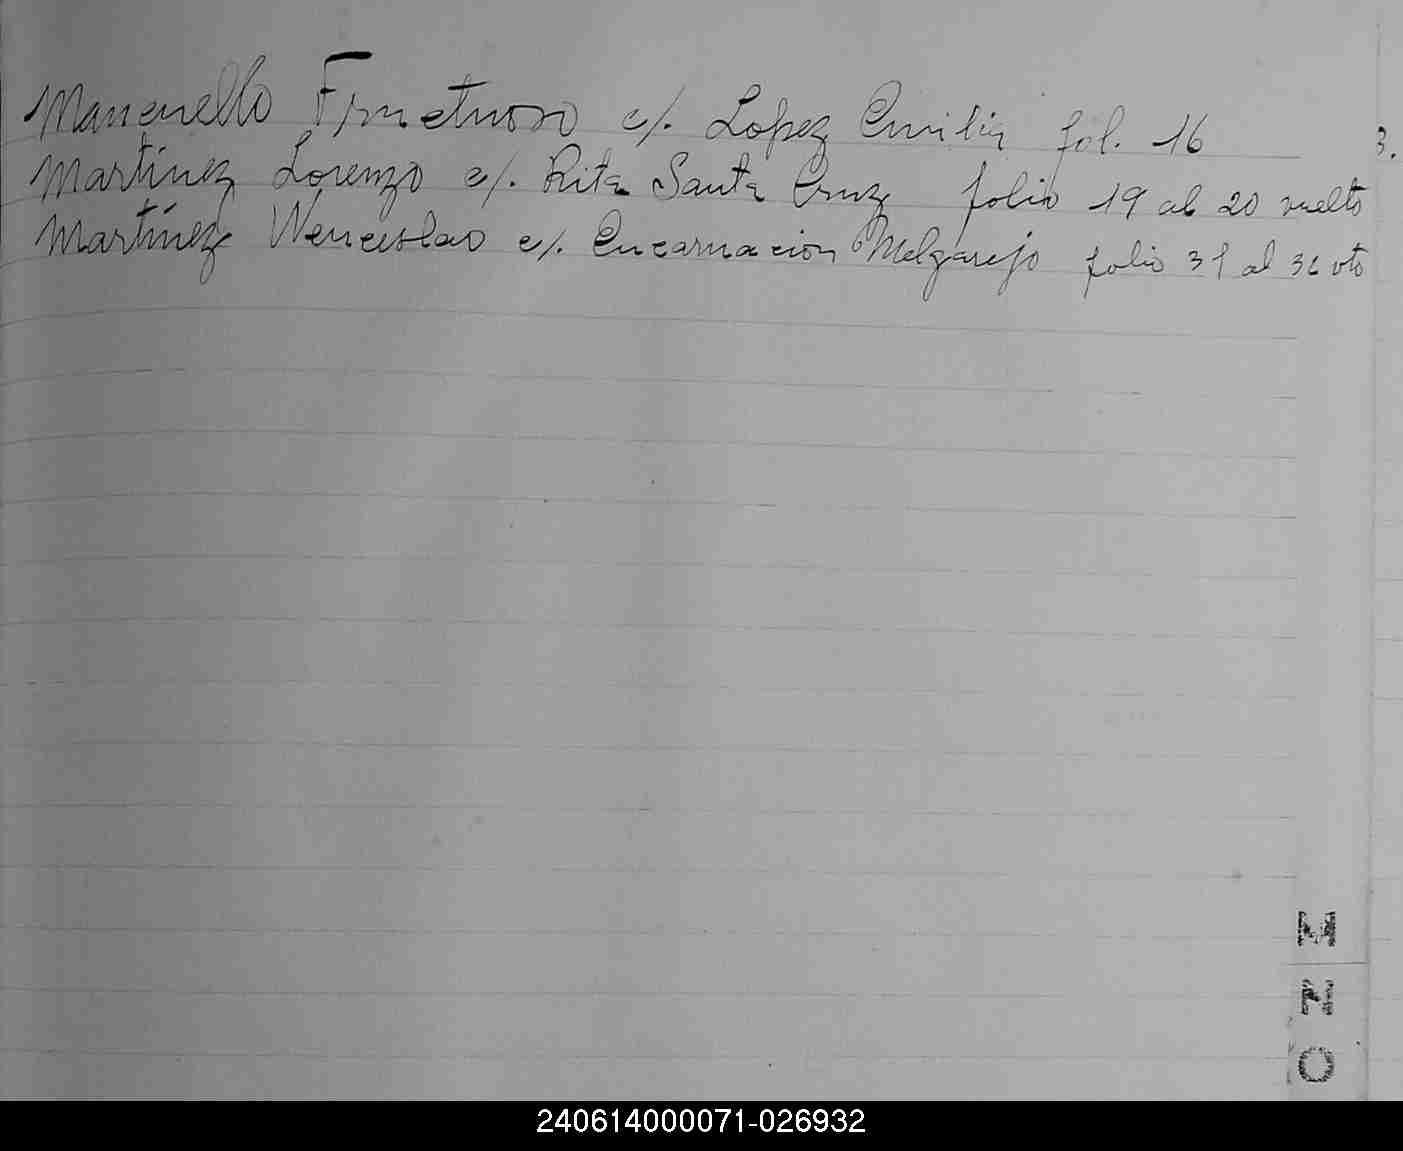 Marcenello Fructuoso c/. Lopez Emilia fol. 16
3.
Martínez Lorenzo c/. Rita Santa Cruz folio 19 al 20 vuelto
Martínez Wenceslao c/. Encarnacion Melgarejo folio 31 al 36 vto
M
N
O
240614000071-026932